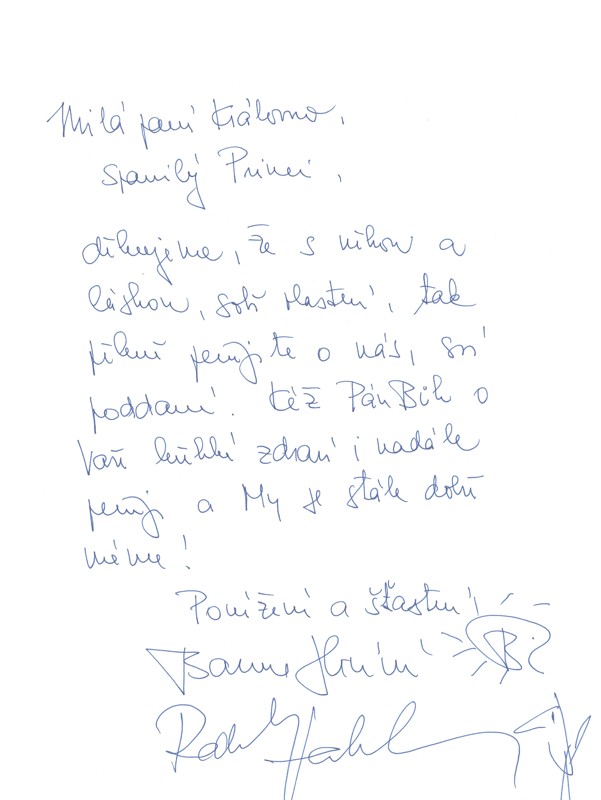 Milá paní Královno,
spanilý Princi,
děkujeme, že s něhou a
láskou, sobě vlastní, tak
pěkně pečujete o nás, své
poddané. Kéž Pán Bůh o
Vaše křehké zdraví i nadále
pečuje a My se stále dobře
máme!
Poníženi a šťastni
Radek